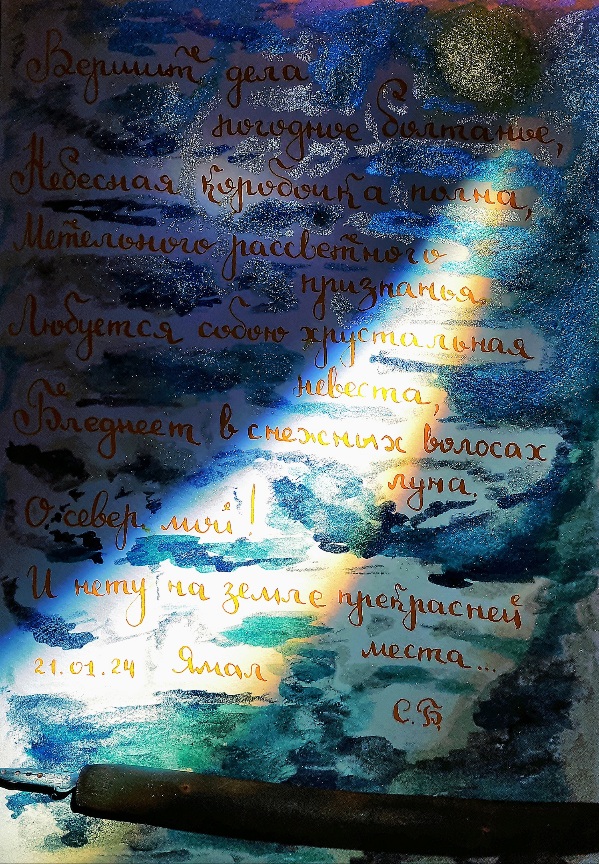 Вершит дела
погодное болтанье,
Небесная коробочка полна,
Метельного рассветного
признанья.
Любуется собою хрустальная
невеста,
Бледнеет в снежных волосах
луна.
О север мой!
И нету на земле прекрасней
места...
21.01.24 Ямал
С.Б.